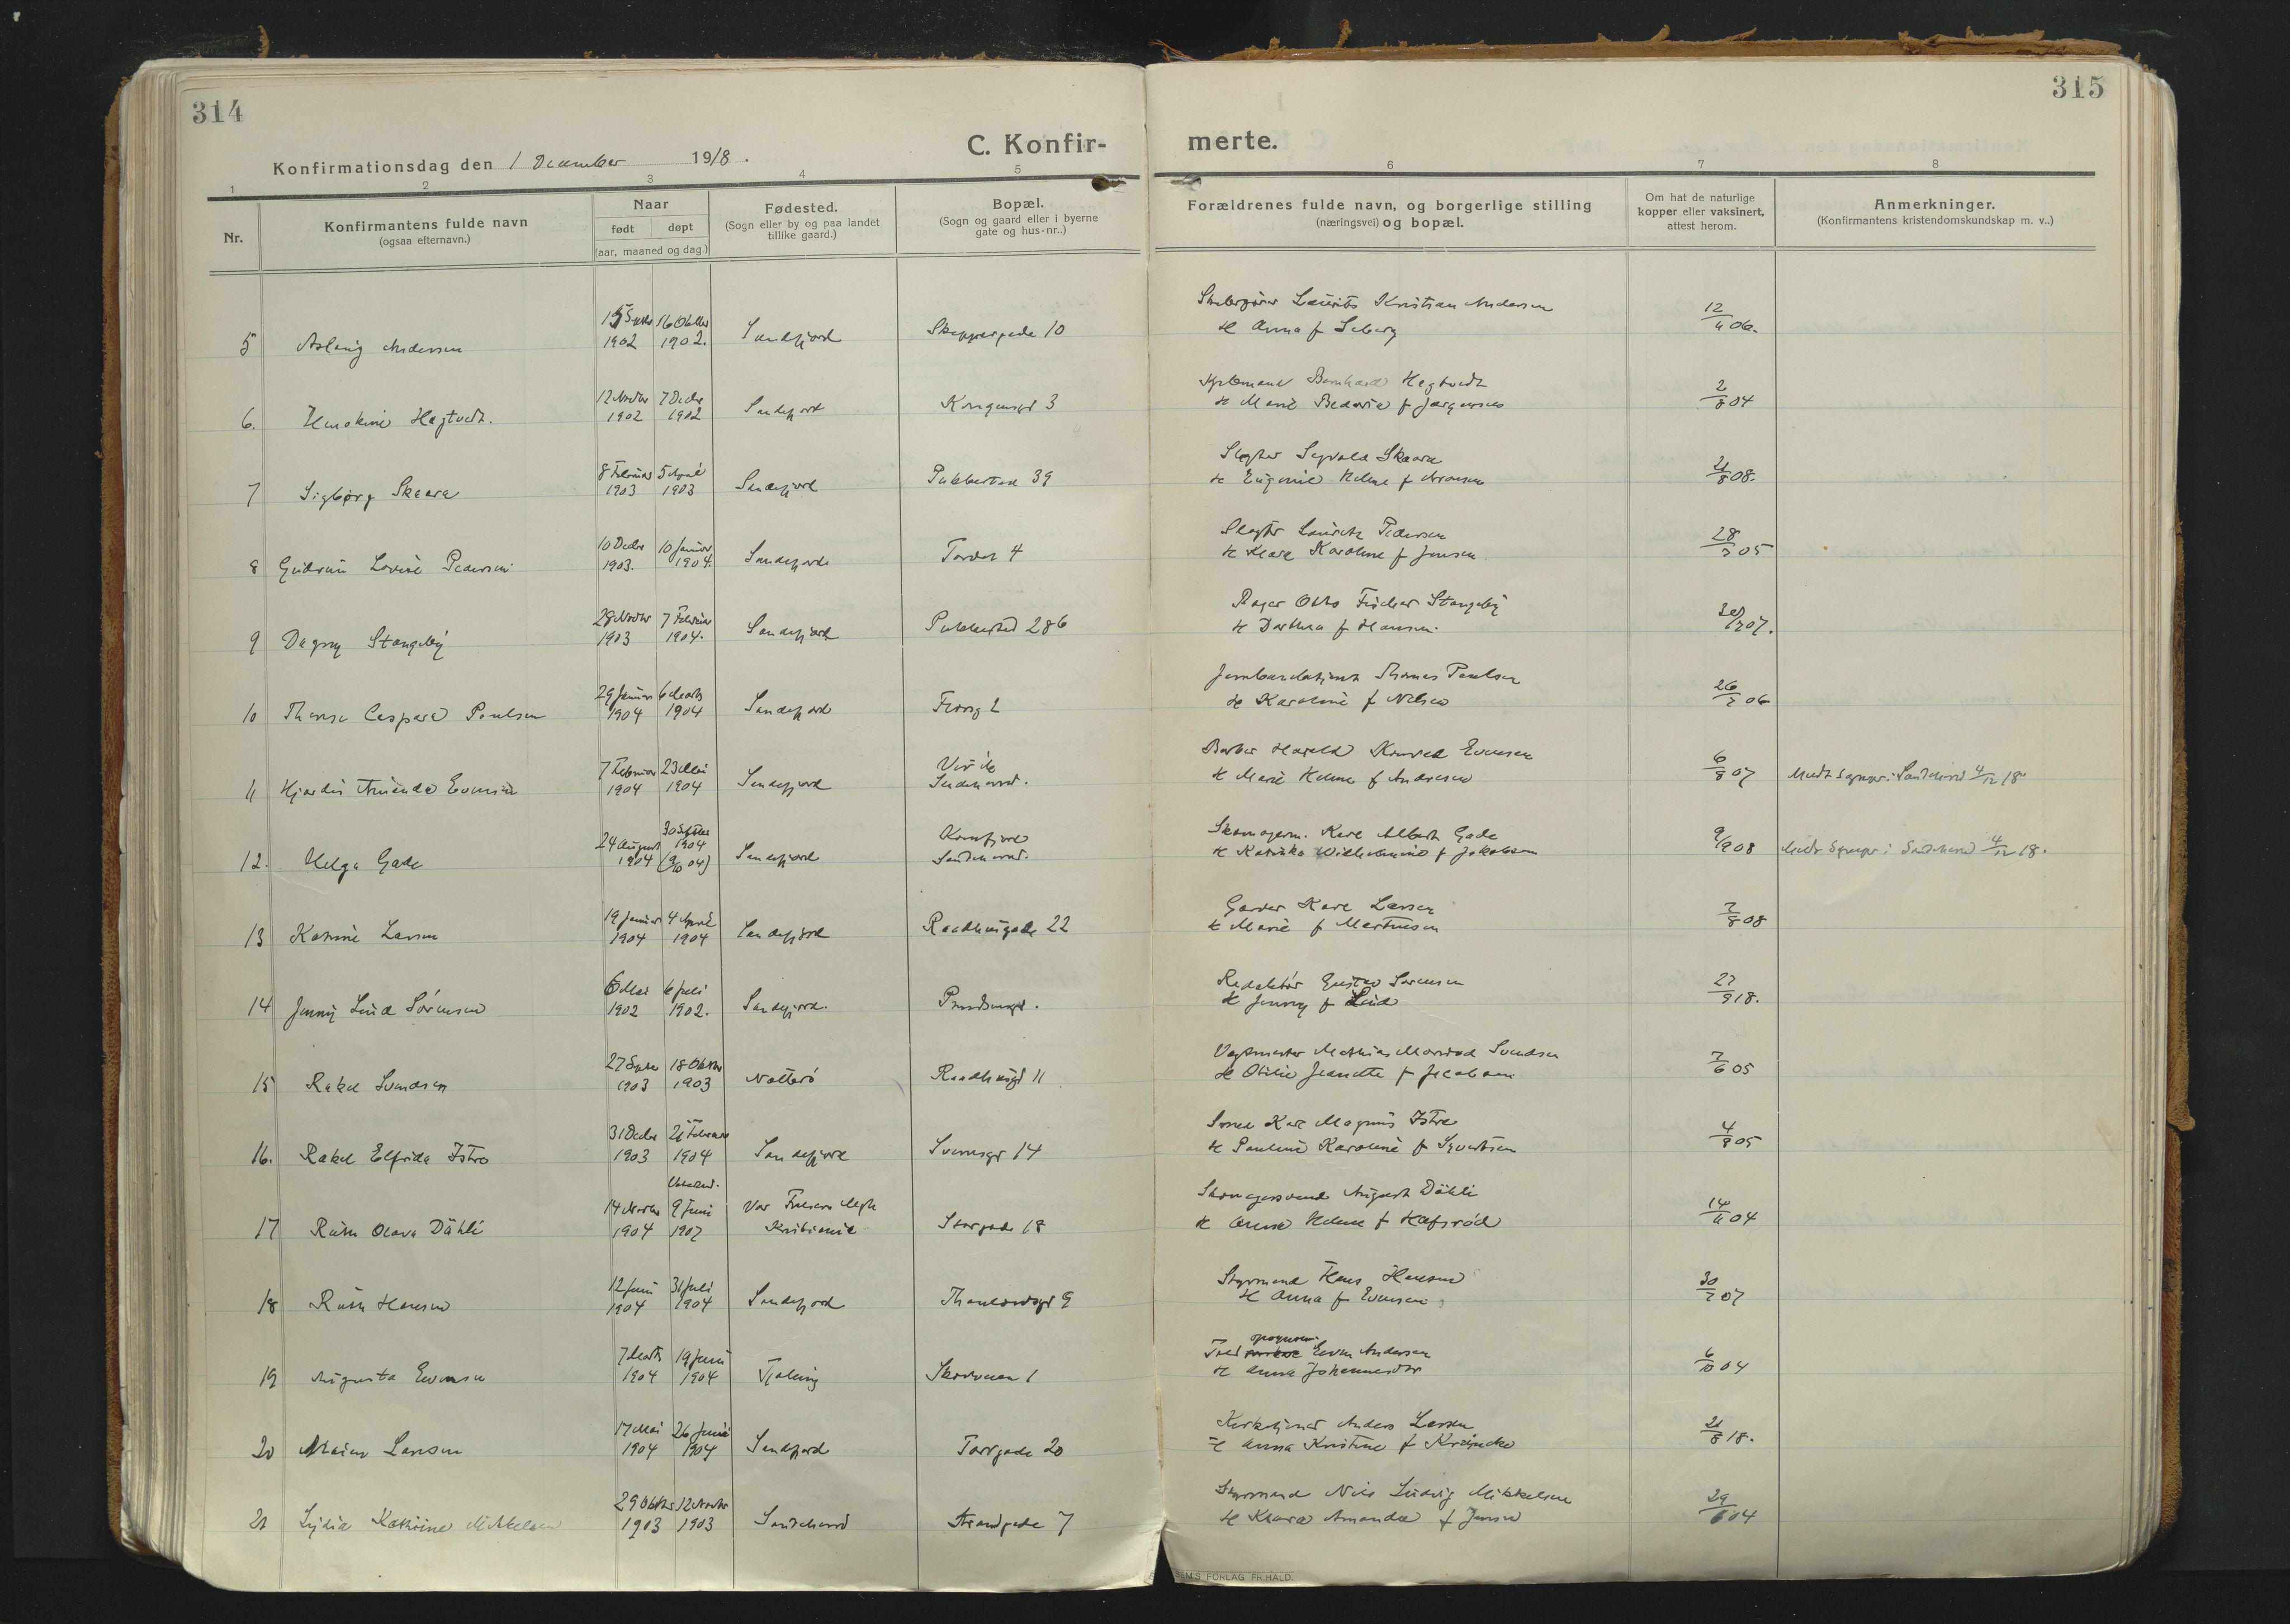 314
315
Konfirmationsdag den 1 December 1918.
C. Konfir-
merte.
1 2 3 4 5 6 7 8
Nr.
Konfirmantens fulde navn
(ogsaa efternavn.)
Naar
født døpt
(aar, maaned og dag.)
Fødested.
(Sogn eller by og paa landet
tillike gaard.)
Bopæl.
(Sogn og gaard eller i byerne
gate og hus-nr..)
Forældrenes fulde navn, og borgerlige stilling
(næringsvei) og bopæl.
Om hat de naturlige
kopper eller vaksinert,
attest herom.
Anmerkninger.
(Konfirmantens kristendomskundskap m. v..)
Laurits Kristian Andersen
15 Septbr 16 Oktbr
12/4 06.
5 Aslaug Andersen 1902 1902. Sandefjord Skippergade 10
H Anna f Seberg
Bernhard Hegtvedt
12 Novbr 7 Decbr
2/8 04
6. Hegtvedt. 1902 1902 Sandefjord Kongensgt 3
H Marie f Jørgensen
Sigvald Skaara
8 Februar 5 April
21/8 08.
7 Sigbjørg Skaara 1903 1903 Sandefjord Pukkestad 39
H Eugenie Helene f Aronsen
Slagter Lauritz Pedersen
10 Decbr 10 Januar
28/7 05
8 Gudrun Lovise Pedersen 1903. 1904. Sandefjord Torvet 4
H Karoline f Jensen
Bager Otto Fischer Stangeby
28 Novbr 7 Februar
30/7 07.
9 Dagny Stangeby 1903 1904. Sandefjord Pukkestad 286
H Dorthea f Hansen
Thomas Paulsen
29 Januar 6 Marts
26/7 06
10 Caspara Paulsen 1904 1904 Sandefjord
H Karoline f Nilsen
Barber Harald Konrad Evensen
7 Februar 23 Mai
6/8 07
11 Hjørdis Amanda Evensen 1904 1904 Sandefjord Sandeherred.
H Marie Helene f Andresen
Meldt Sognepr. i Sandeherred 4/12 18
Skomagerm. Karl Albert Gade
24 August 30 Septbr 1904
9/9 08
12. Helga Gade 1904 (9/10 04) Sandefjord Sandeherred.
H Katinka Wilhelmine f Jakobsen
Meldt Sognepr. i Sandeherred 4/12 18.
Garver Karl Larsen
19 Januar 4 April
7/8 08
13 Katrine Larsen 1904 1904 Sandefjord Raadhusgade 22
H Marie f Martinsen
Redaktør Gustav Sørensen
6 Mai 6 Juli
27/9 18.
14 Jenny Lind Sørensen 1902 1902. Sandefjord.
H Jenny f Lind
Vagtmester Mathias Svendsen
27 Septbr 18 Oktbr
7/6 05
15 Rakel Svendsen 1903 1903 Nøtterø Raadhusgt 11
H Otilie Jeanette f Jacobsen
Karl Magnus Istre
31 Decbr 21 Februar
4/8 05
16. Rakel Elfrida Istre 1903 1904 Sandefjord Svensgt 14
H Pauline Karoline f Syvertsen
August Dähli
14 Novbr 9 Juni Vor Frelsers Mgh
14/11 04
17 Ruth Olava Dähli 1904 1907 Kristiania Storgade 18
H Anna Helene f Hafsrød
Styrmand Hans Hansen
12 Juni 31 Juli
30/7 07
18 Ruth Hansen 1904 1904 Sandefjord Thaulowsgt 9
H Anna f Evensen
Told opsynsm. Even Andersen
7 Marts 19 Juni
6/10 04
19 Augusta Evensen 1904 1904 Tjølling Skolveien 1
H Anna Johannesdtr
Kirketjener Anders Larsen
17 Mai 26 Juni
21/8 18.
20 Larsen 1904 1904 Sandefjord Torvgade 20
H Anna Kristine f
Styrmand Nils Ludvig Mikkelsen
29 Oktbr 12 Novbr
29/6 04
21 Lydia Katrine Mikkelsen 1903 1903 Sandeherred Strandgade 7
H Klara Amanda f Jensen
SEM'S FORLAG FR.HALD.